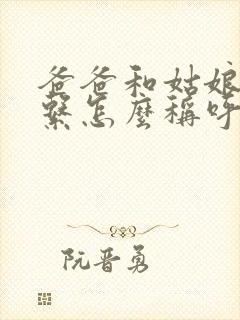 爸爸和姑娘
繫怎麼稱呼
阮晋勇